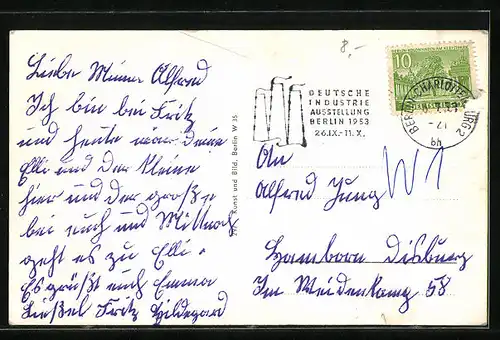 8.-
Liebe Minna Alfred
Ich bin bei Fritz
und heute war deine
Elli und der Kleine
hier und der große
bei euch und Mittwoch
geht es zu Elli.
Es grüßt euch Emma
Liesel Fritz Hildegard
Kunst und Bild, Berlin W 35
DEUTSCHE
INDUSTRIE
AUSSTELLUNG
BERLIN 1953
26.IX.-11.X.
10
BERLIN-CHARLOTTENBURG 2
17
bh
An
Alfred Jung
W1
Hamborn Disburg
Im Weidenkamp 58